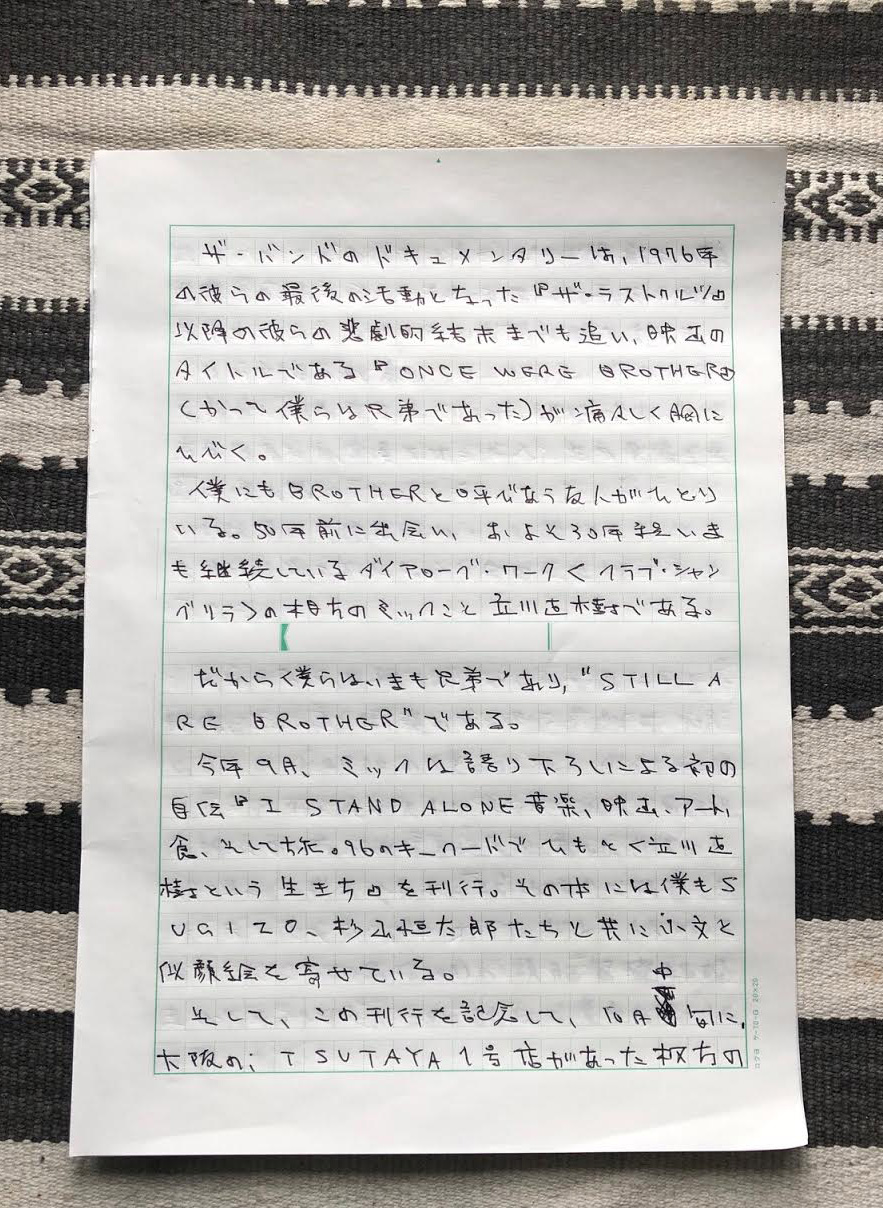 ザ・バンドのドキュメンタリーは、1976年
の彼らの最後の活動となった『ザ・ラストワルツ』
以降の彼らの悲劇的結末までも追い、映画の
タイトルである『ONCE WERE BROTHER』
(かつて僕らは兄弟であった)が痛々しく胸に
ひびく。
僕にもBROTHERと呼びあう友人がひとり
いる。50年前に出会い、およそ30年経いま
も継続しているダイアローグ・ワーク<クラブ・シャン
グリラ>の相方のミックこと立川直樹である。
だから僕らはいまも兄弟であり、"STILL A
RE BROTHER"である。
今年9月、ミックは語り下ろしによる初の
自伝『I STAND ALONE 音楽、映画、アート、
食、そして旅。96のキーワードでひもとく立川直
樹という生き方』を刊行。その本には僕もS
UGIZO、杉山恒太郎たちと共に小文と
似顔絵を寄せている。
そして、この刊行を記念して、10月中旬に、
大阪の、TSUTAYA 1号店があった枚方の
コクヨ ケ-10 20×20